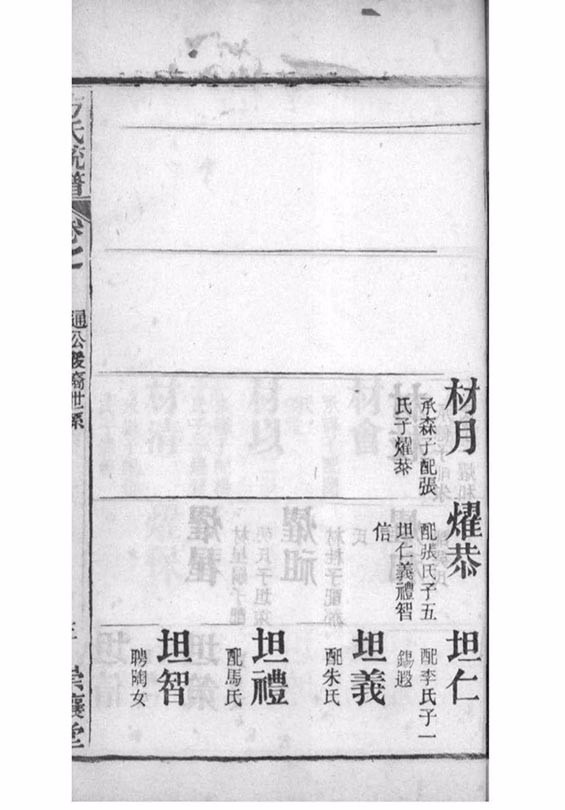 材月
承森子配張
氏子燿恭
燿恭
配張氏子五
坦仁義禮智
信
坦仁
配李氏子一
錫遐
坦義
配朱氏
坦禮
配馬氏
坦智
聘陶女
氏統譜
卷
通公後裔世系
崇襄堂